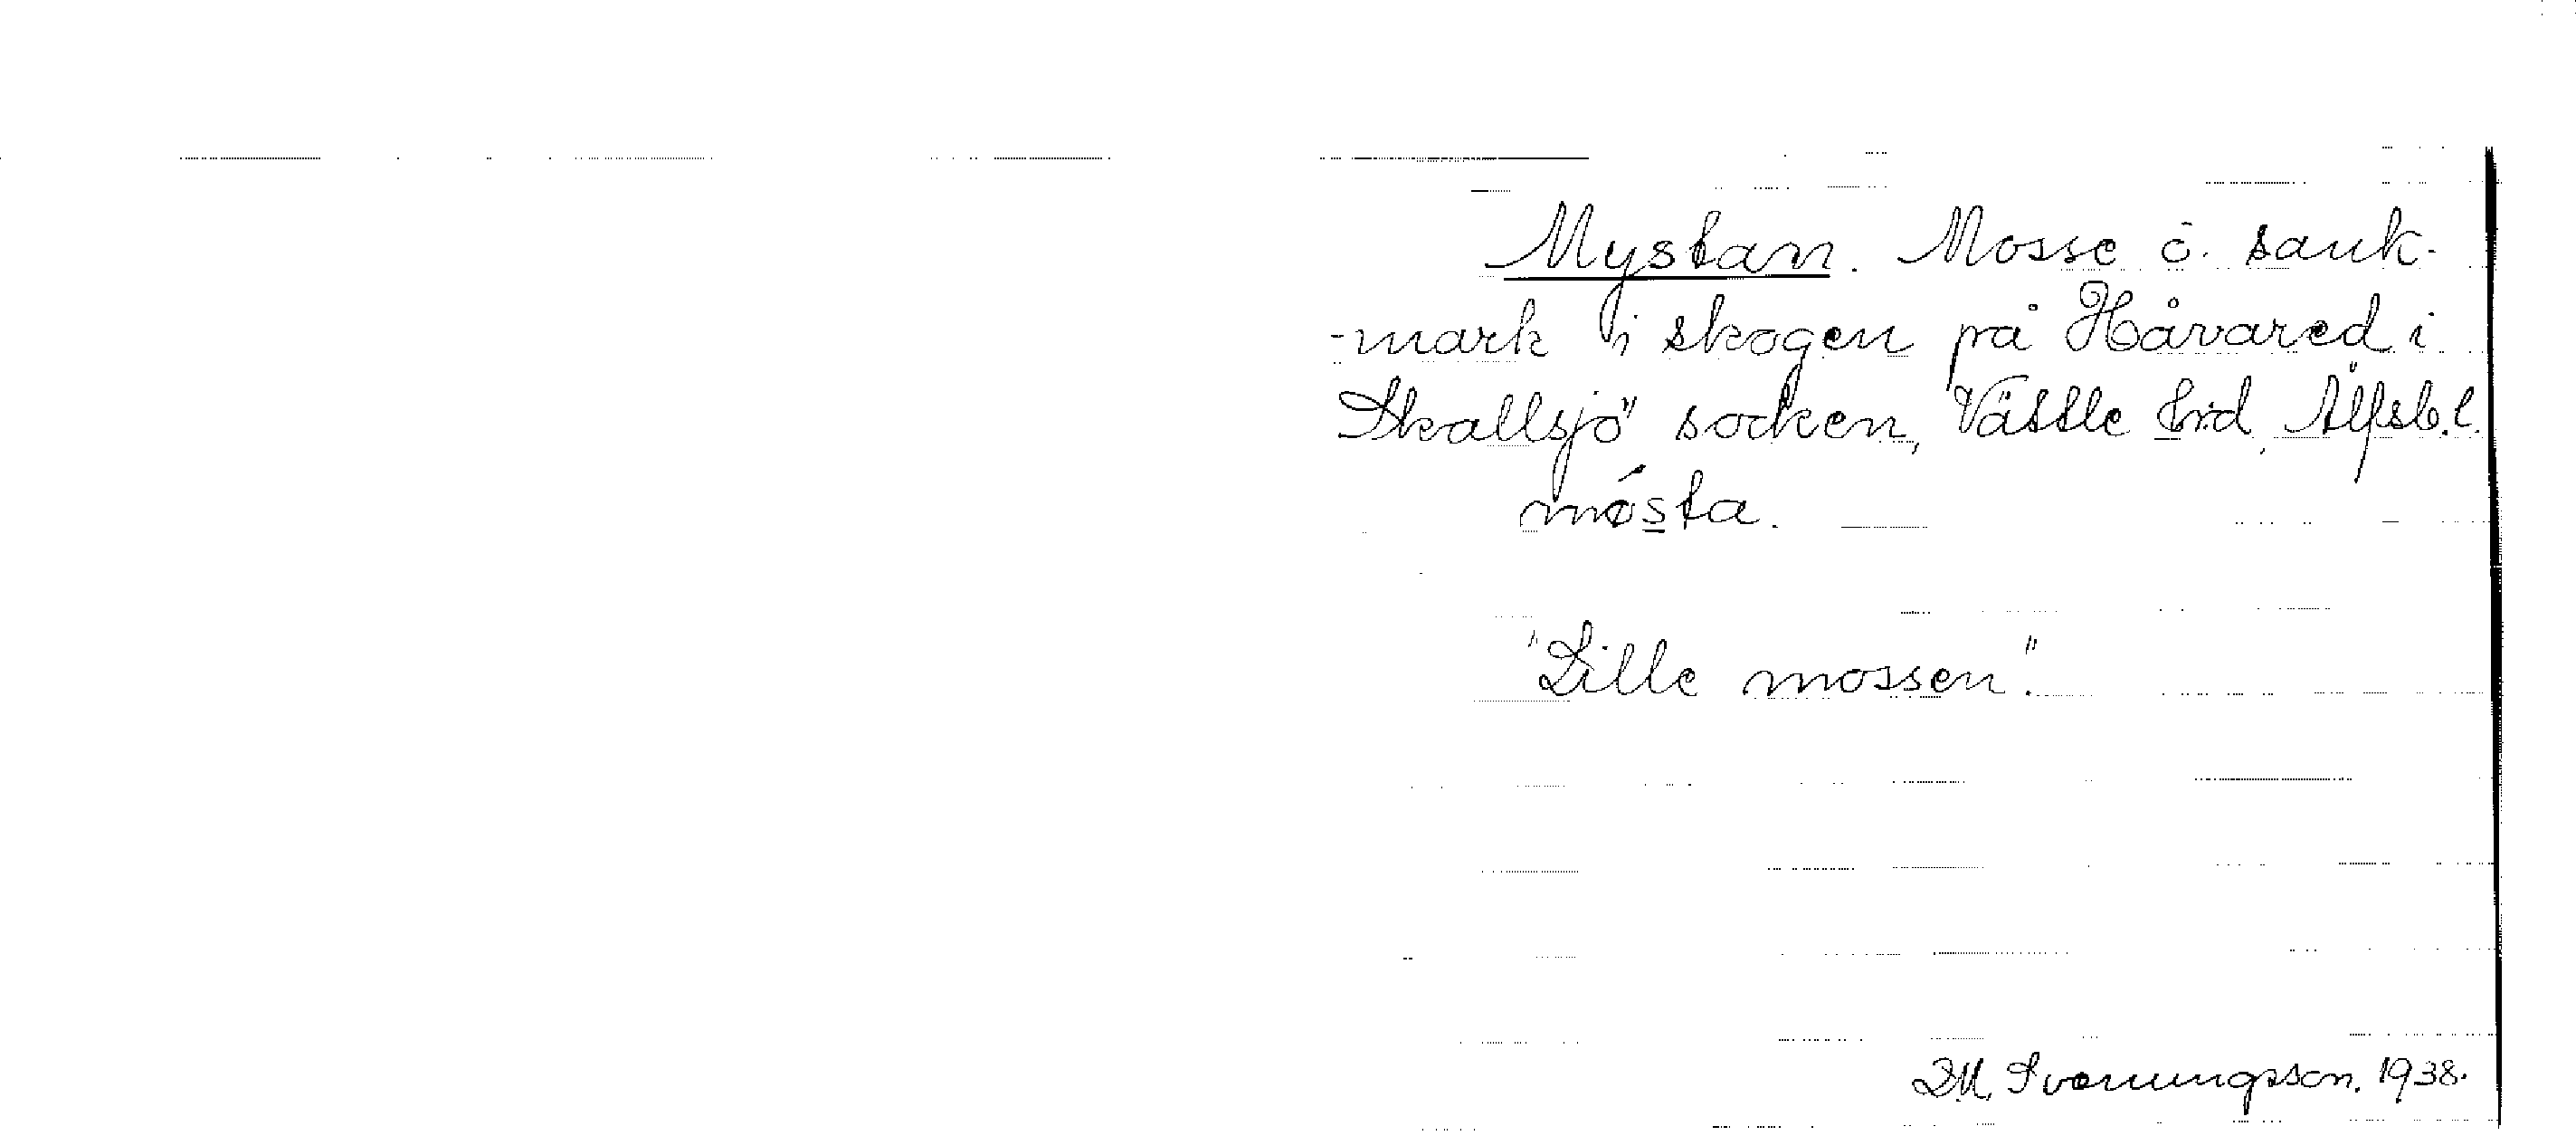 Mystan. Mosse o. sank-
-mark i skogen på Håvared i
Skallsjö socken, Vättle hrd, Älfsb.l.
mø´sta.
"Lille mossen".
D.M. Svenungsson. 1938.